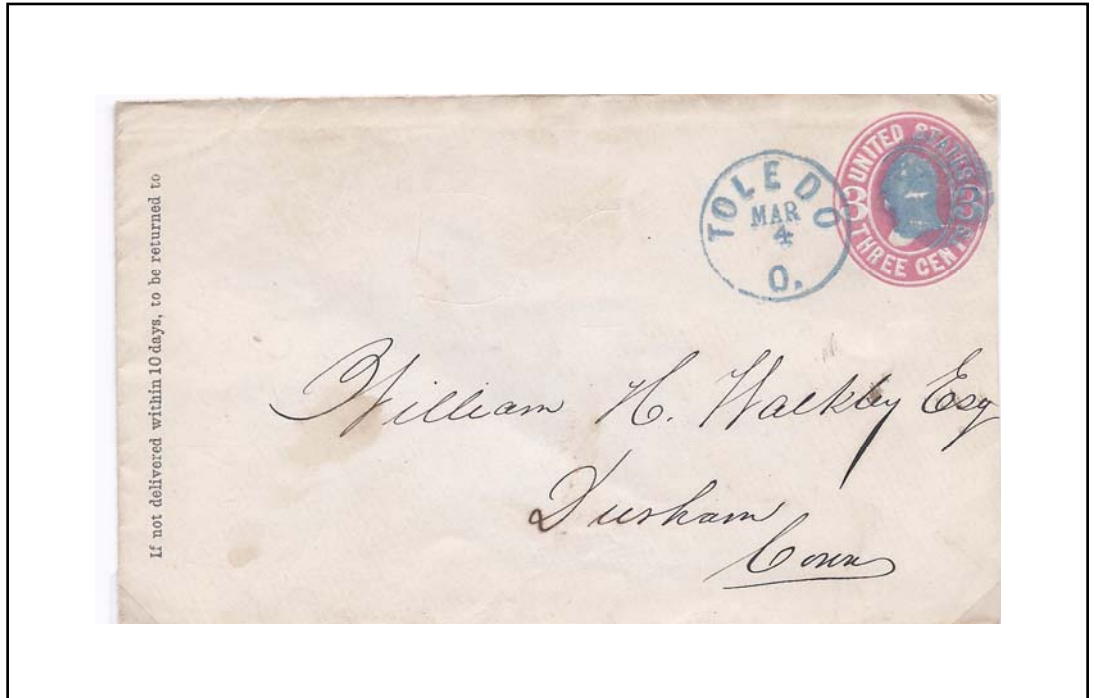 If not delivered within 10 days, to be returned to
TOLEDO
MAR
4
O.
UNITED STATES
3 3
THREE CENTS
William H. Walkley Esq
Durham
Conn